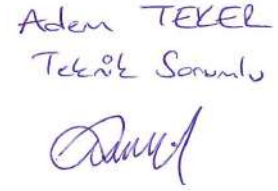 Adem TEKER
Teknik Sorumlu